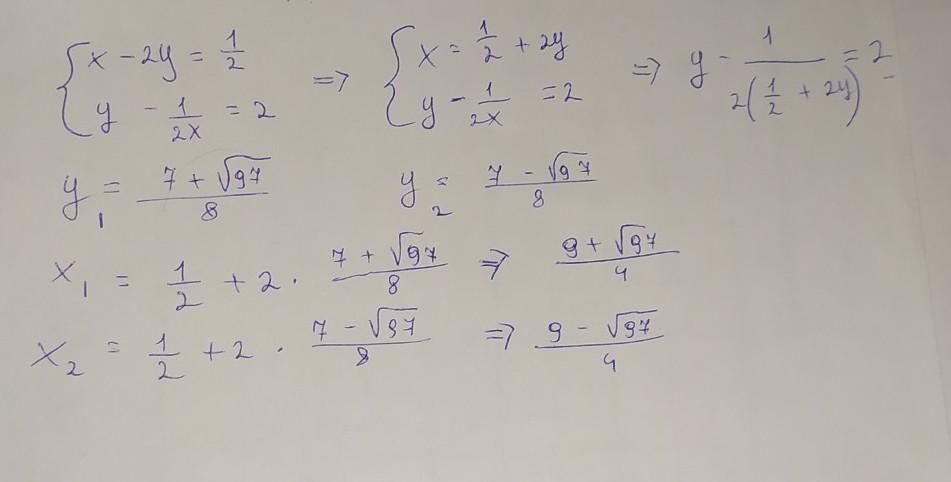 { x - 2y = 1/2, y - 1/2x = 2 => { x = 1/2 + 2y, y - 1/2x = 2 => y - 1/2(1/2 + 2y) = 2
y₁ = 7 + √97/8 y₂ = 7 - √97/8
x₁ = 1/2 + 2 · 7 + √97/8 => 9 + √97/4
x₂ = 1/2 + 2 · 7 - √97/8 => 9 - √97/4